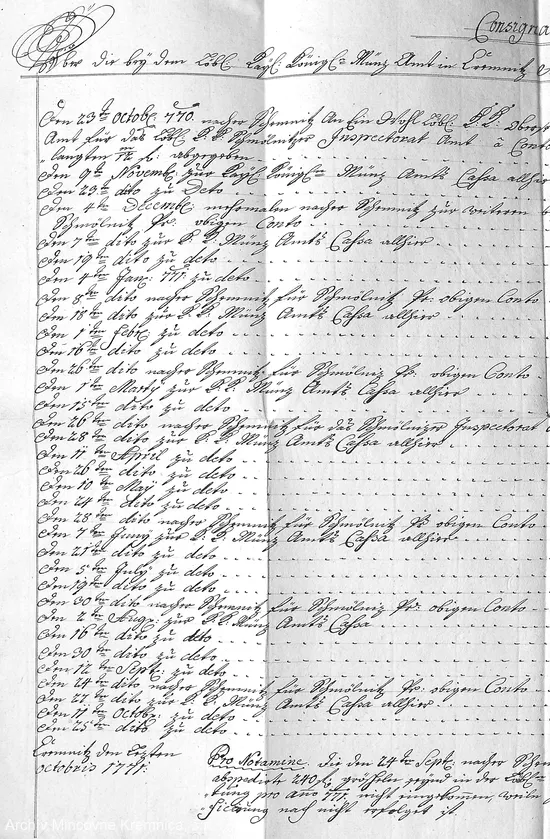 Consigna
Über die bey dem Löbl: Kayl: Königl: Münz Amt in Cremnitz
Den 23t Octobr 770. nacher Schemnitz An Ein Wohl Löbl: K: K: Oberst
Amt für das Löbl: K: K: Schmölnitzer Inspectorat Amt à Conto
langten f: abgegeben
Den 9ten Novembr zur Kayl: Königl: Münz Amts Cassa allhier
Den 23ten dito zu deto
Den 4ten Decembr mehrmalen nacher Schemnitz zur weiteren
Schmölnitz Pr: obigen Conto
Den 7ten dito zur K: K: Münz Amts Cassa allhier
Den 19ten dito zu deto
Den 4ten Janr: 771. zu deto
Den 8ten dito nacher Schemnitz für Schmölnitz Pr: obigen Conto
Den 18ten dito zur K: K: Münz Amts Cassa allhier
Den 1ten Febr: zu deto
Den 16ten dito zu deto
Den 26ten dito nacher Schemnitz für Schmölniz Pr: obigen Conto
Den 1ten Marty zur K: K: Münz Amts Cassa allhier
Den 15ten dito zu deto
Den 26ten dito nacher Schemnitz für das Schmölnizer Inspectorat
Den 28ten dito zur K: K: Münz Amts Cassa allhier
Den 11ten April zu deto
Den 26ten dito zu deto
Den 10ten May zu deto
Den 24ten dito zu deto
Den 28ten dito nacher Schemnitz für Schmölnitz Pr obigen Conto
Den 7ten Juny zur K: K: Münz Amts Cassa allhier
Den 21ten dito zu deto
Den 5ten July zu deto
Den 19ten dito zu deto
Den 30ten dito nacher Schemnitz für Schmölniz Pr: obigen Conto
Den 2ten Aug: zur K: K: Münz Amts Cassa
Den 16ten dito zu deto
Den 30ten dito zu deto
Den 12ten Septr: zu deto
Den 24ten dito nacher Schemnitz für Schmölnitz Pr: obigen Conto
Den 27ten dito zur K: K: Münz Amts Cassa allhier
Den 11ten Octobr: zu deto
Den 25ten dito zu deto
Cremnitz den Lezten
Octobris 1771:
Pro Notamine. die den 24ten Sept: nacher Schem
abspedirte 240 f: gröscheln seynd in der Löbl:
tung pro año 771 nicht eingekommen, weilen
sicherung nach nicht erfolget ist.
Archív Mincovne Kremnica